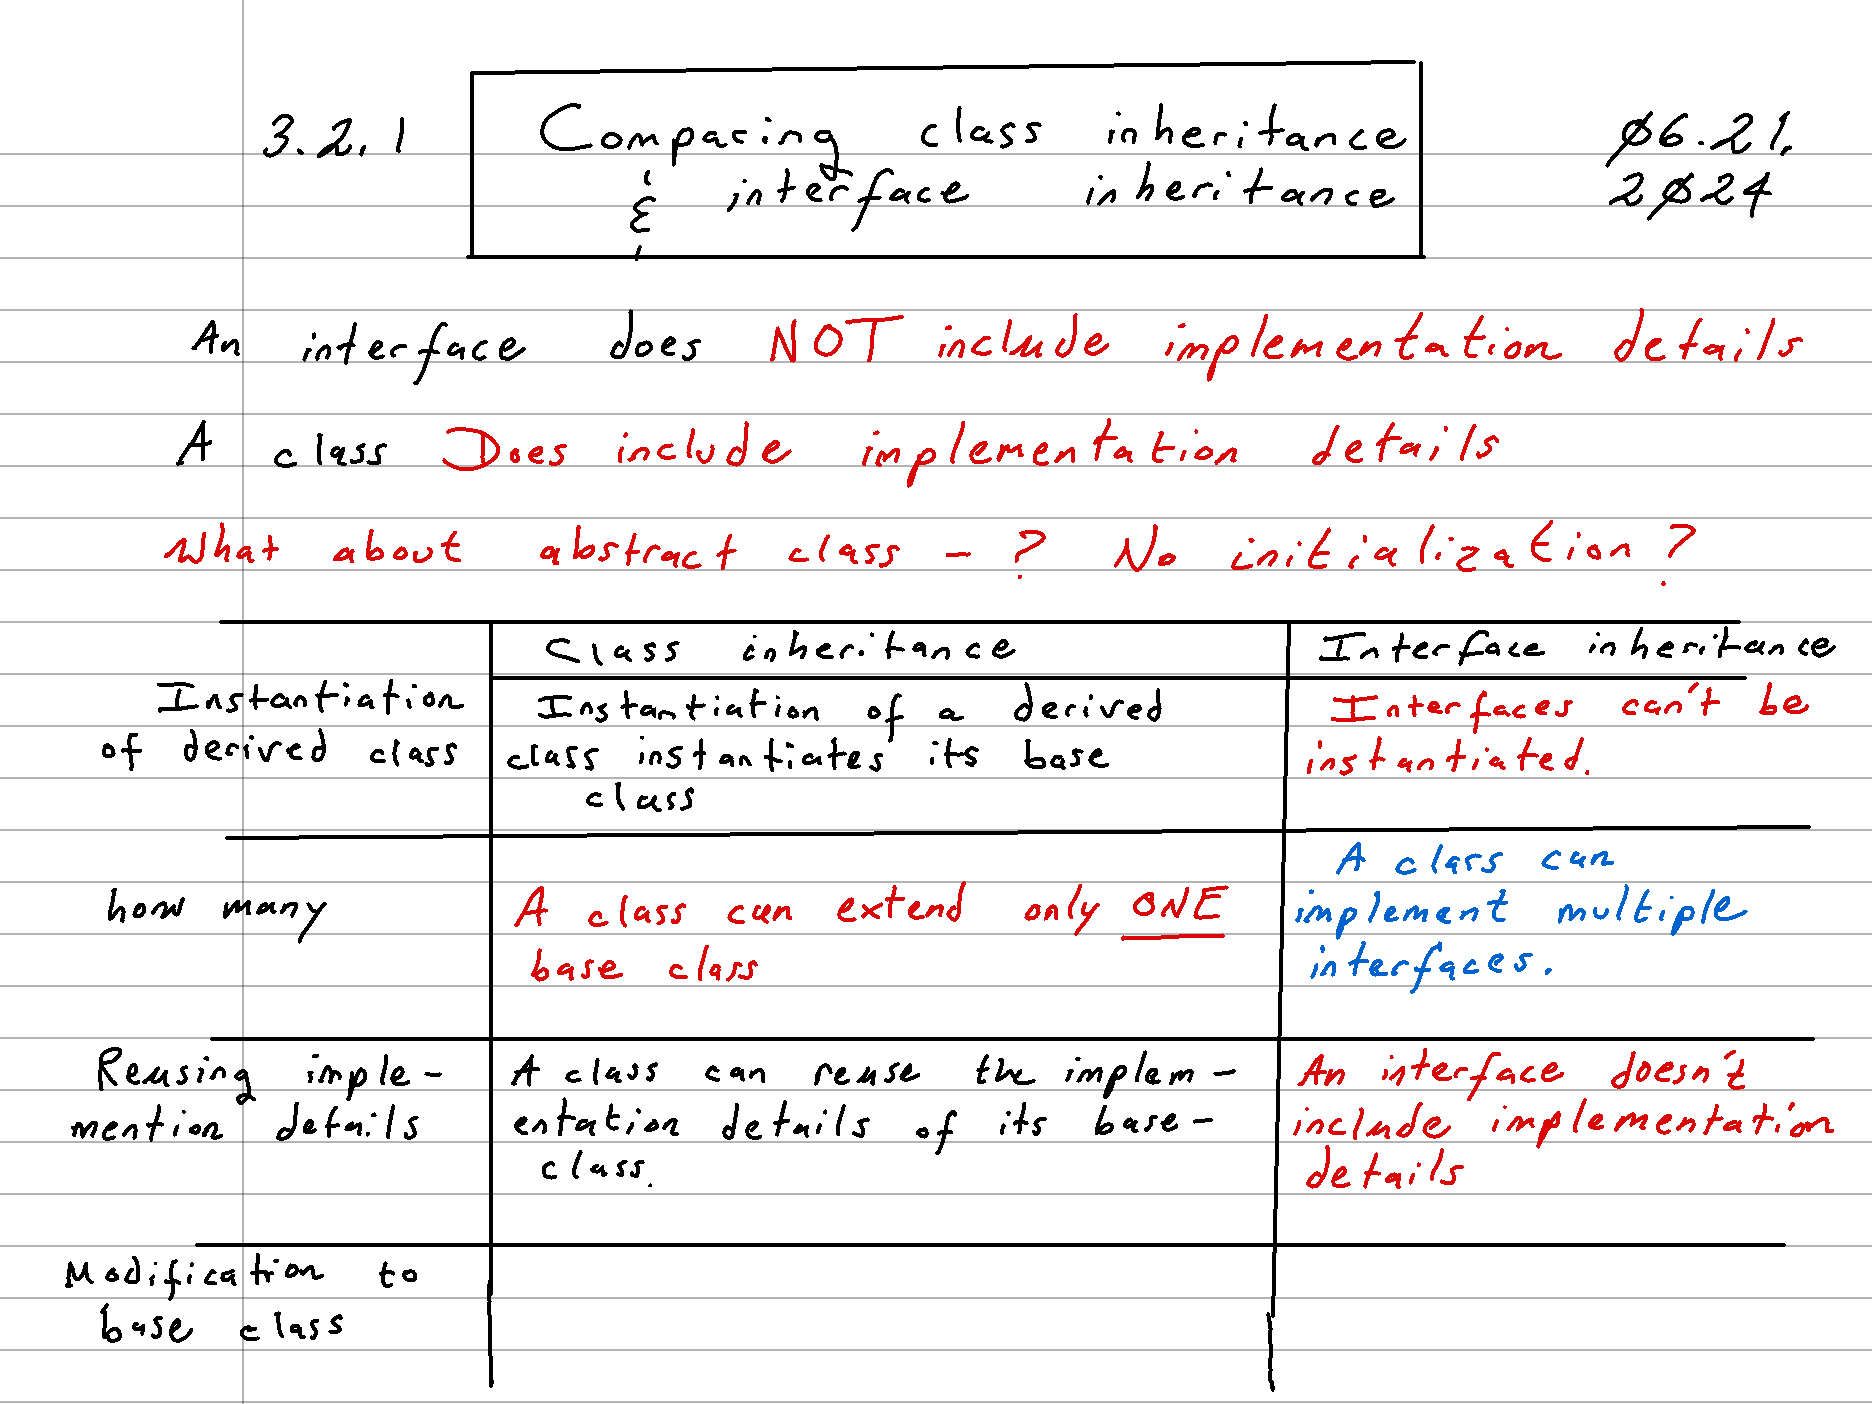 3.2.1 Comparing class inheritance Ø6.21.
& interface inheritance 2Ø24
An interface does NOT include implementation details
A class Does include implementation details
What about abstract class - ? No initialization?
Class inheritance Interface inheritance
Instantiation
of derived class
Instantiation of a derived
class instantiates its base
class
Interfaces can't be
instantiated.
how many
A class can extend only ONE
base class
A class can
implement multiple
interfaces.
Reusing imple-
mention details
A class can reuse the implem-
entation details of its base-
class.
An interface doesn't
include implementation
details
Modification to
base class